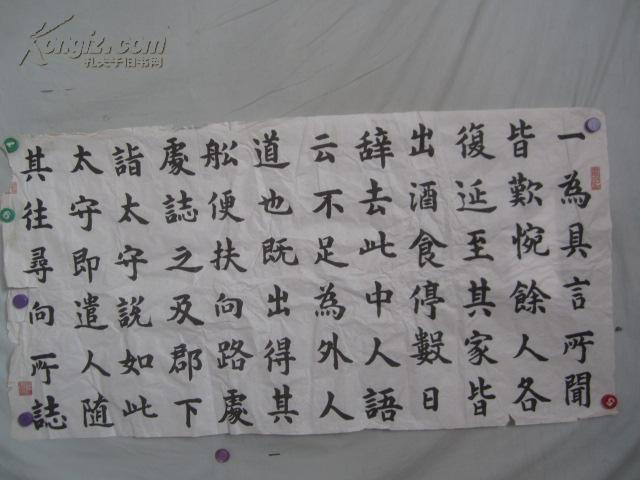 一為具言所聞
皆歎惋餘人各
復延至其家皆
出酒食停數日
辞去此中人語
云不足為外人
道也既出得其
舩便扶向路處
處誌之及郡下
詣太守説如此
太守即遣人随
其往尋向所誌
Kongfz.com
孔夫子旧书网